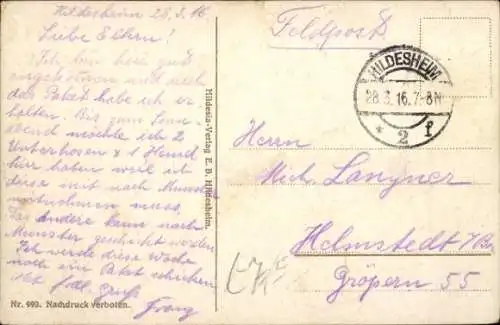 Hildesheim 28.3.16
Liebe Eltern!
Ich bin heute gut
angekommen und auch
das Paket habe ich er
halten. Bis zum Sonn
abend möchte ich 2
Unterhosen & 1 Hemd
hier haben weil ich
diese mit nach Munster
mitnehmen muss.
Das Andere kann nach
Munster geschickt werden.
Ich werde diese Woche
noch ein Paket schicken
Mit hzl. Gruß
Franz
Nr. 993. Nachdruck verboten.
Hildesia-Verlag E. D. Hildesheim.
Feldpost
HILDESHEIM
28.3.16.7-8N
* 2 f
Herrn
Mich. Langner
Helmstedt /Br.
Gröpern 55